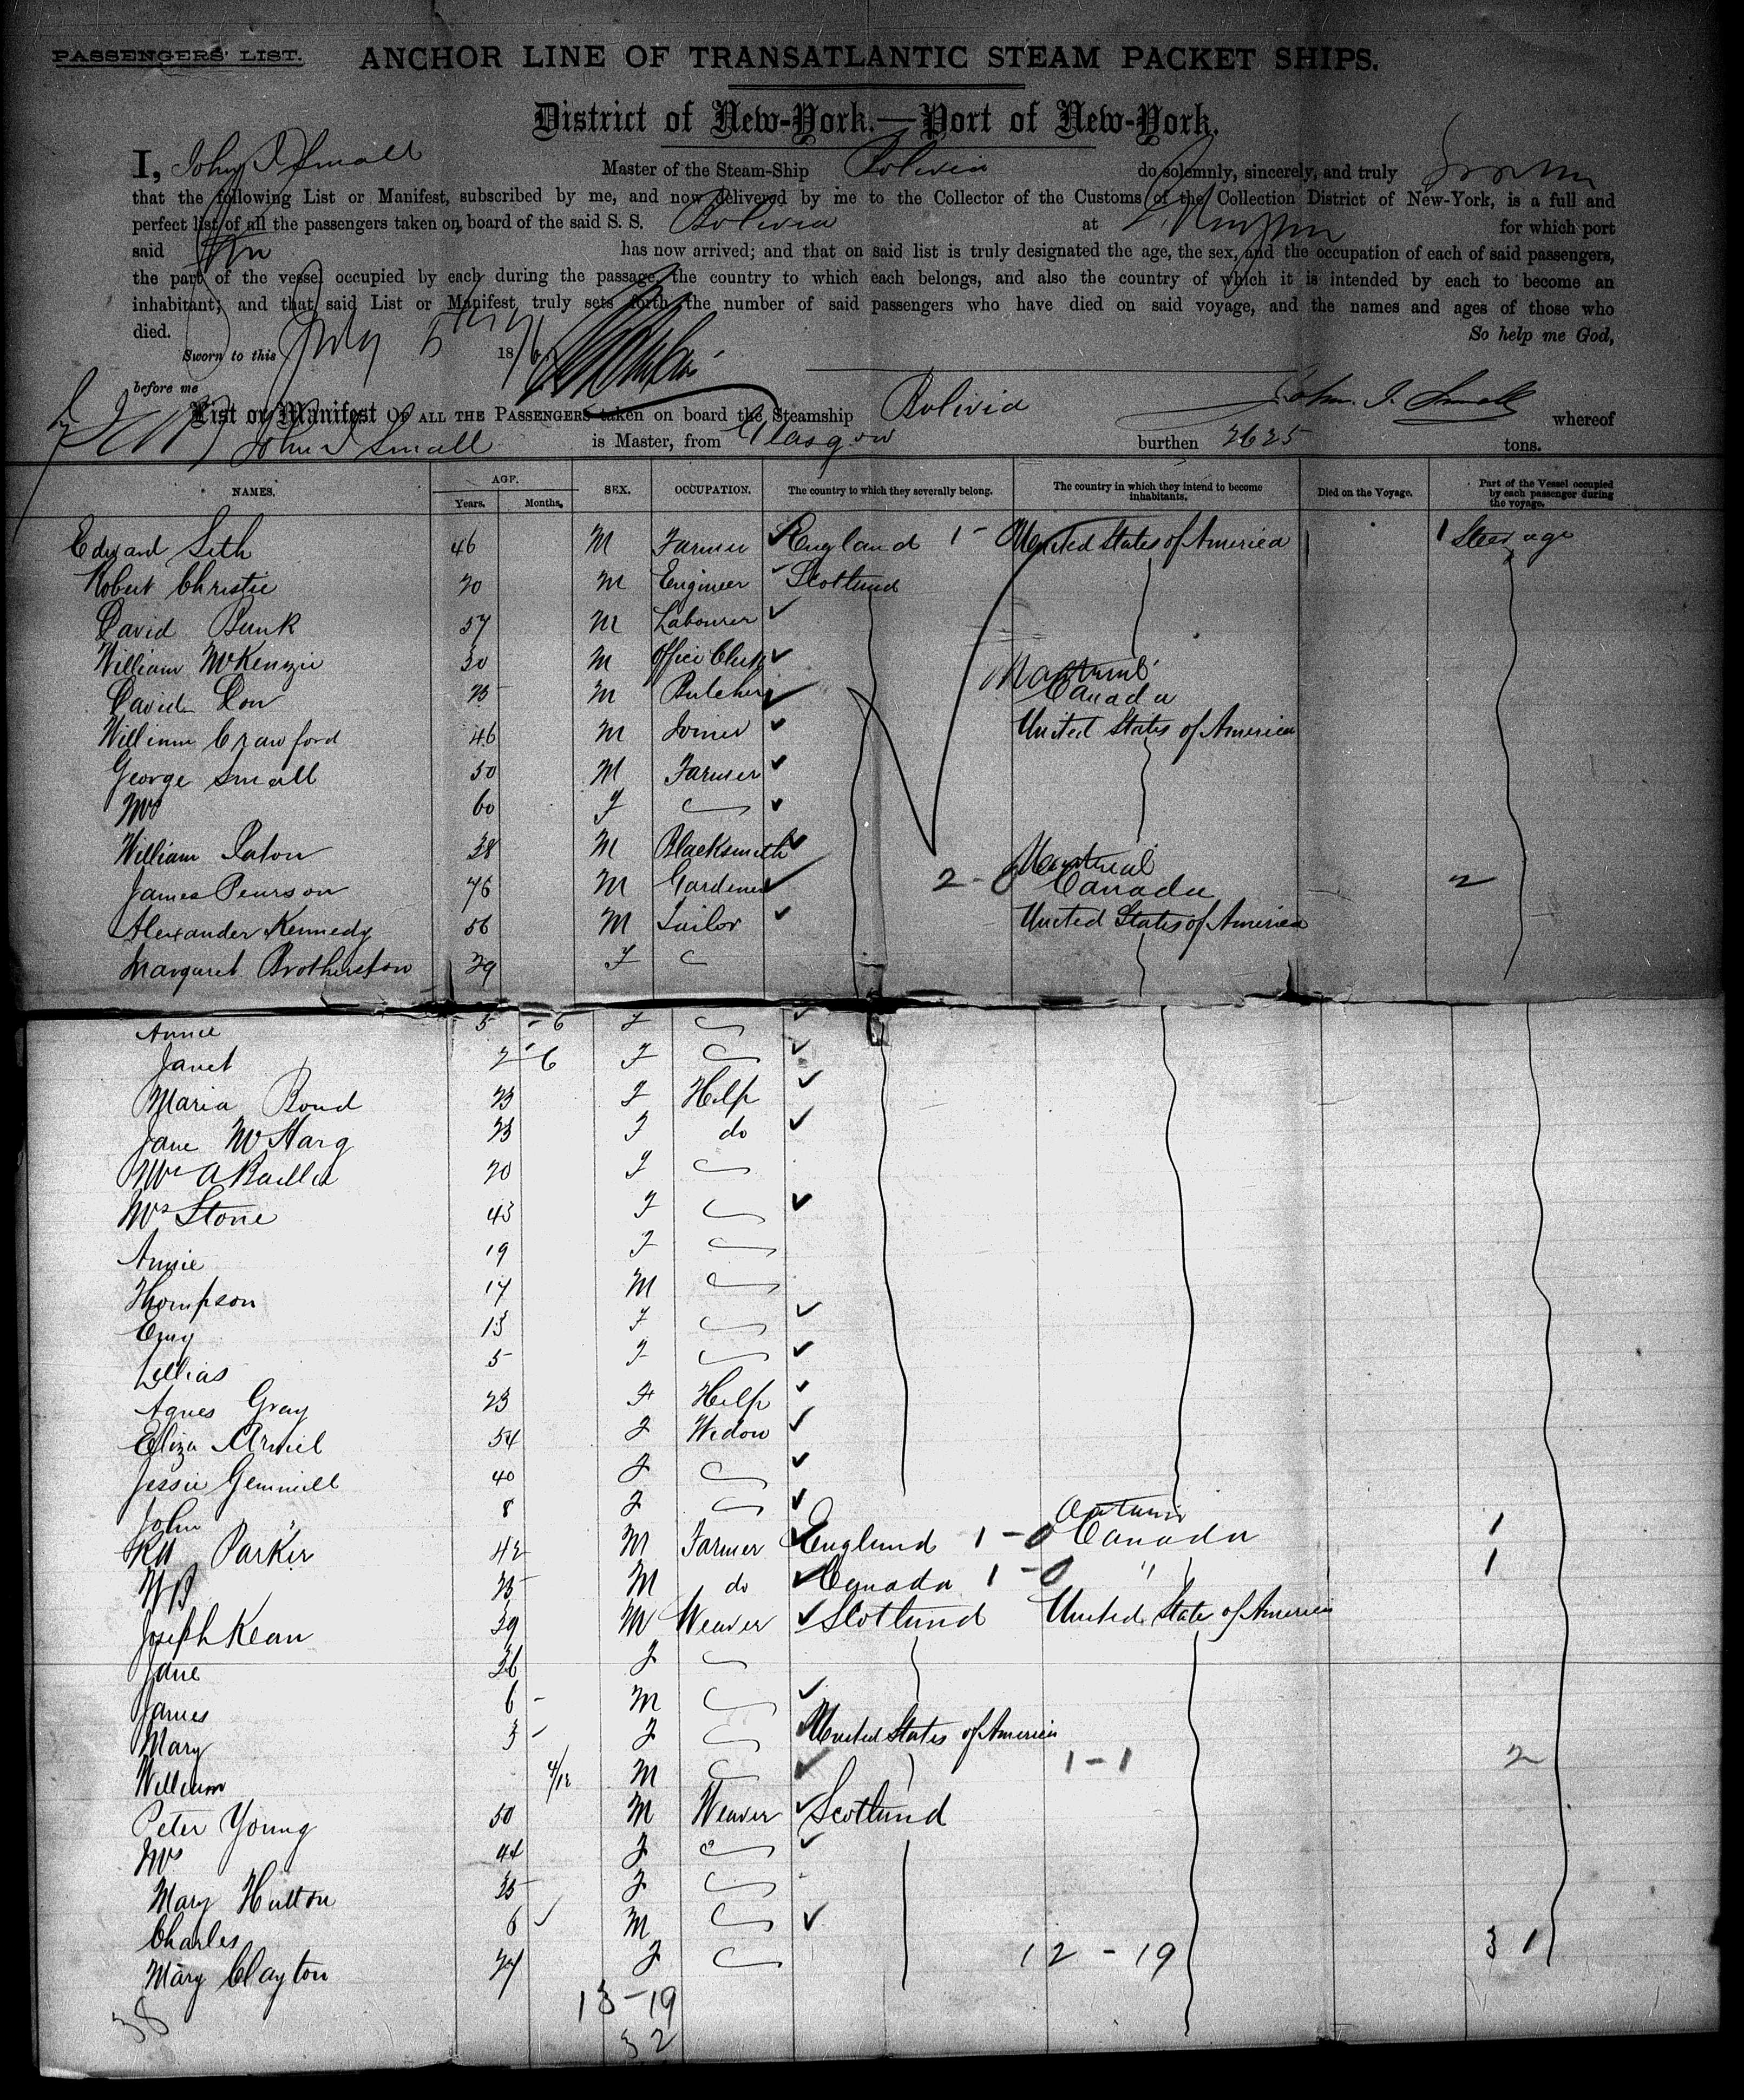 PASSENGERS' LIST. ANCHOR LINE OF TRANSATLANTIC STEAM PACKET SHIPS.
District of New-York.—Port of New-York.
I, John I Small Master of the Steam-Ship Bolivia do solemnly, sincerely, and truly
that the following List or Manifest, subscribed by me, and now delivered by me to the Collector of the Customs of the Collection District of New-York, is a full and
perfect list of all the passengers taken on board of the said S. S. Bolivia at for which port
said has now arrived; and that on said list is truly designated the age, the sex, and the occupation of each of said passengers,
the part of the vessel occupied by each during the passage, the country to which each belongs, and also the country of which it is intended by each to become an
inhabitant; and that said List or Manifest truly sets forth the number of said passengers who have died on said voyage, and the names and ages of those who
died. So help me God,
Sworn to this July 5th 1876
before me
List or Manifest OF ALL THE PASSENGERS taken on board the Steamship Bolivia John. I. Small whereof
John I Small is Master, from Glasgow burthen 2625 tons.
NAMES. AGE. Years. Months. SEX. OCCUPATION. The country to which they severally belong. The country in which they intend to become inhabitants. Died on the Voyage. Part of the Vessel occupied by each passenger during the voyage.
Edward Seth 46 M Farmer England 1 - 0 United States of America 1 Steerage
Robert Christie 20 M Engineer Scotland
David Bunk 57 M Labourer
William McKenzie 30 M Office Clerk
David Low 25 M Butcher Montreal Canada
William Crawford 46 M Joiner United States of America
George Small 50 M Farmer
Mrs 60 F
William Paton 38 M Blacksmith
James Pearson 76 M Gardener 2 - 0 Montreal Canada 2
Alexander Kennedy 56 M Tailor United States of America
Margaret Brotherston 29 F
Annie 5 - 6 F
Janet 2 - 6 F
Maria Bond 23 F Help
Jane McHarg 23 F do
Mrs A Baillie 20 F
Mrs Stone 43 F
Annie 19 F
Thompson 17 M
Emy 13 F
Lillias 5 F
Agnes Gray 23 F Help
Eliza 54 F Widow
Jessie Gemmill 40 F
John " 8 F
RH Parker 42 M Farmer England 1 - 0 Ontario Canada 1
M B 25 M do Canada 1 - 0 " 1
Joseph Kean 39 M Weaver Scotland United State of America
Jane 36 F
James 6 - M
Mary 3 - F United States of America
William 4/12 M 1 - 1 2
Peter Young 50 M Weaver Scotland
Mrs 44 F
Mary Hutton 35 F
Charles 6 M
Mary Clayton 27 F 12 - 19 31
13 - 19
38 32